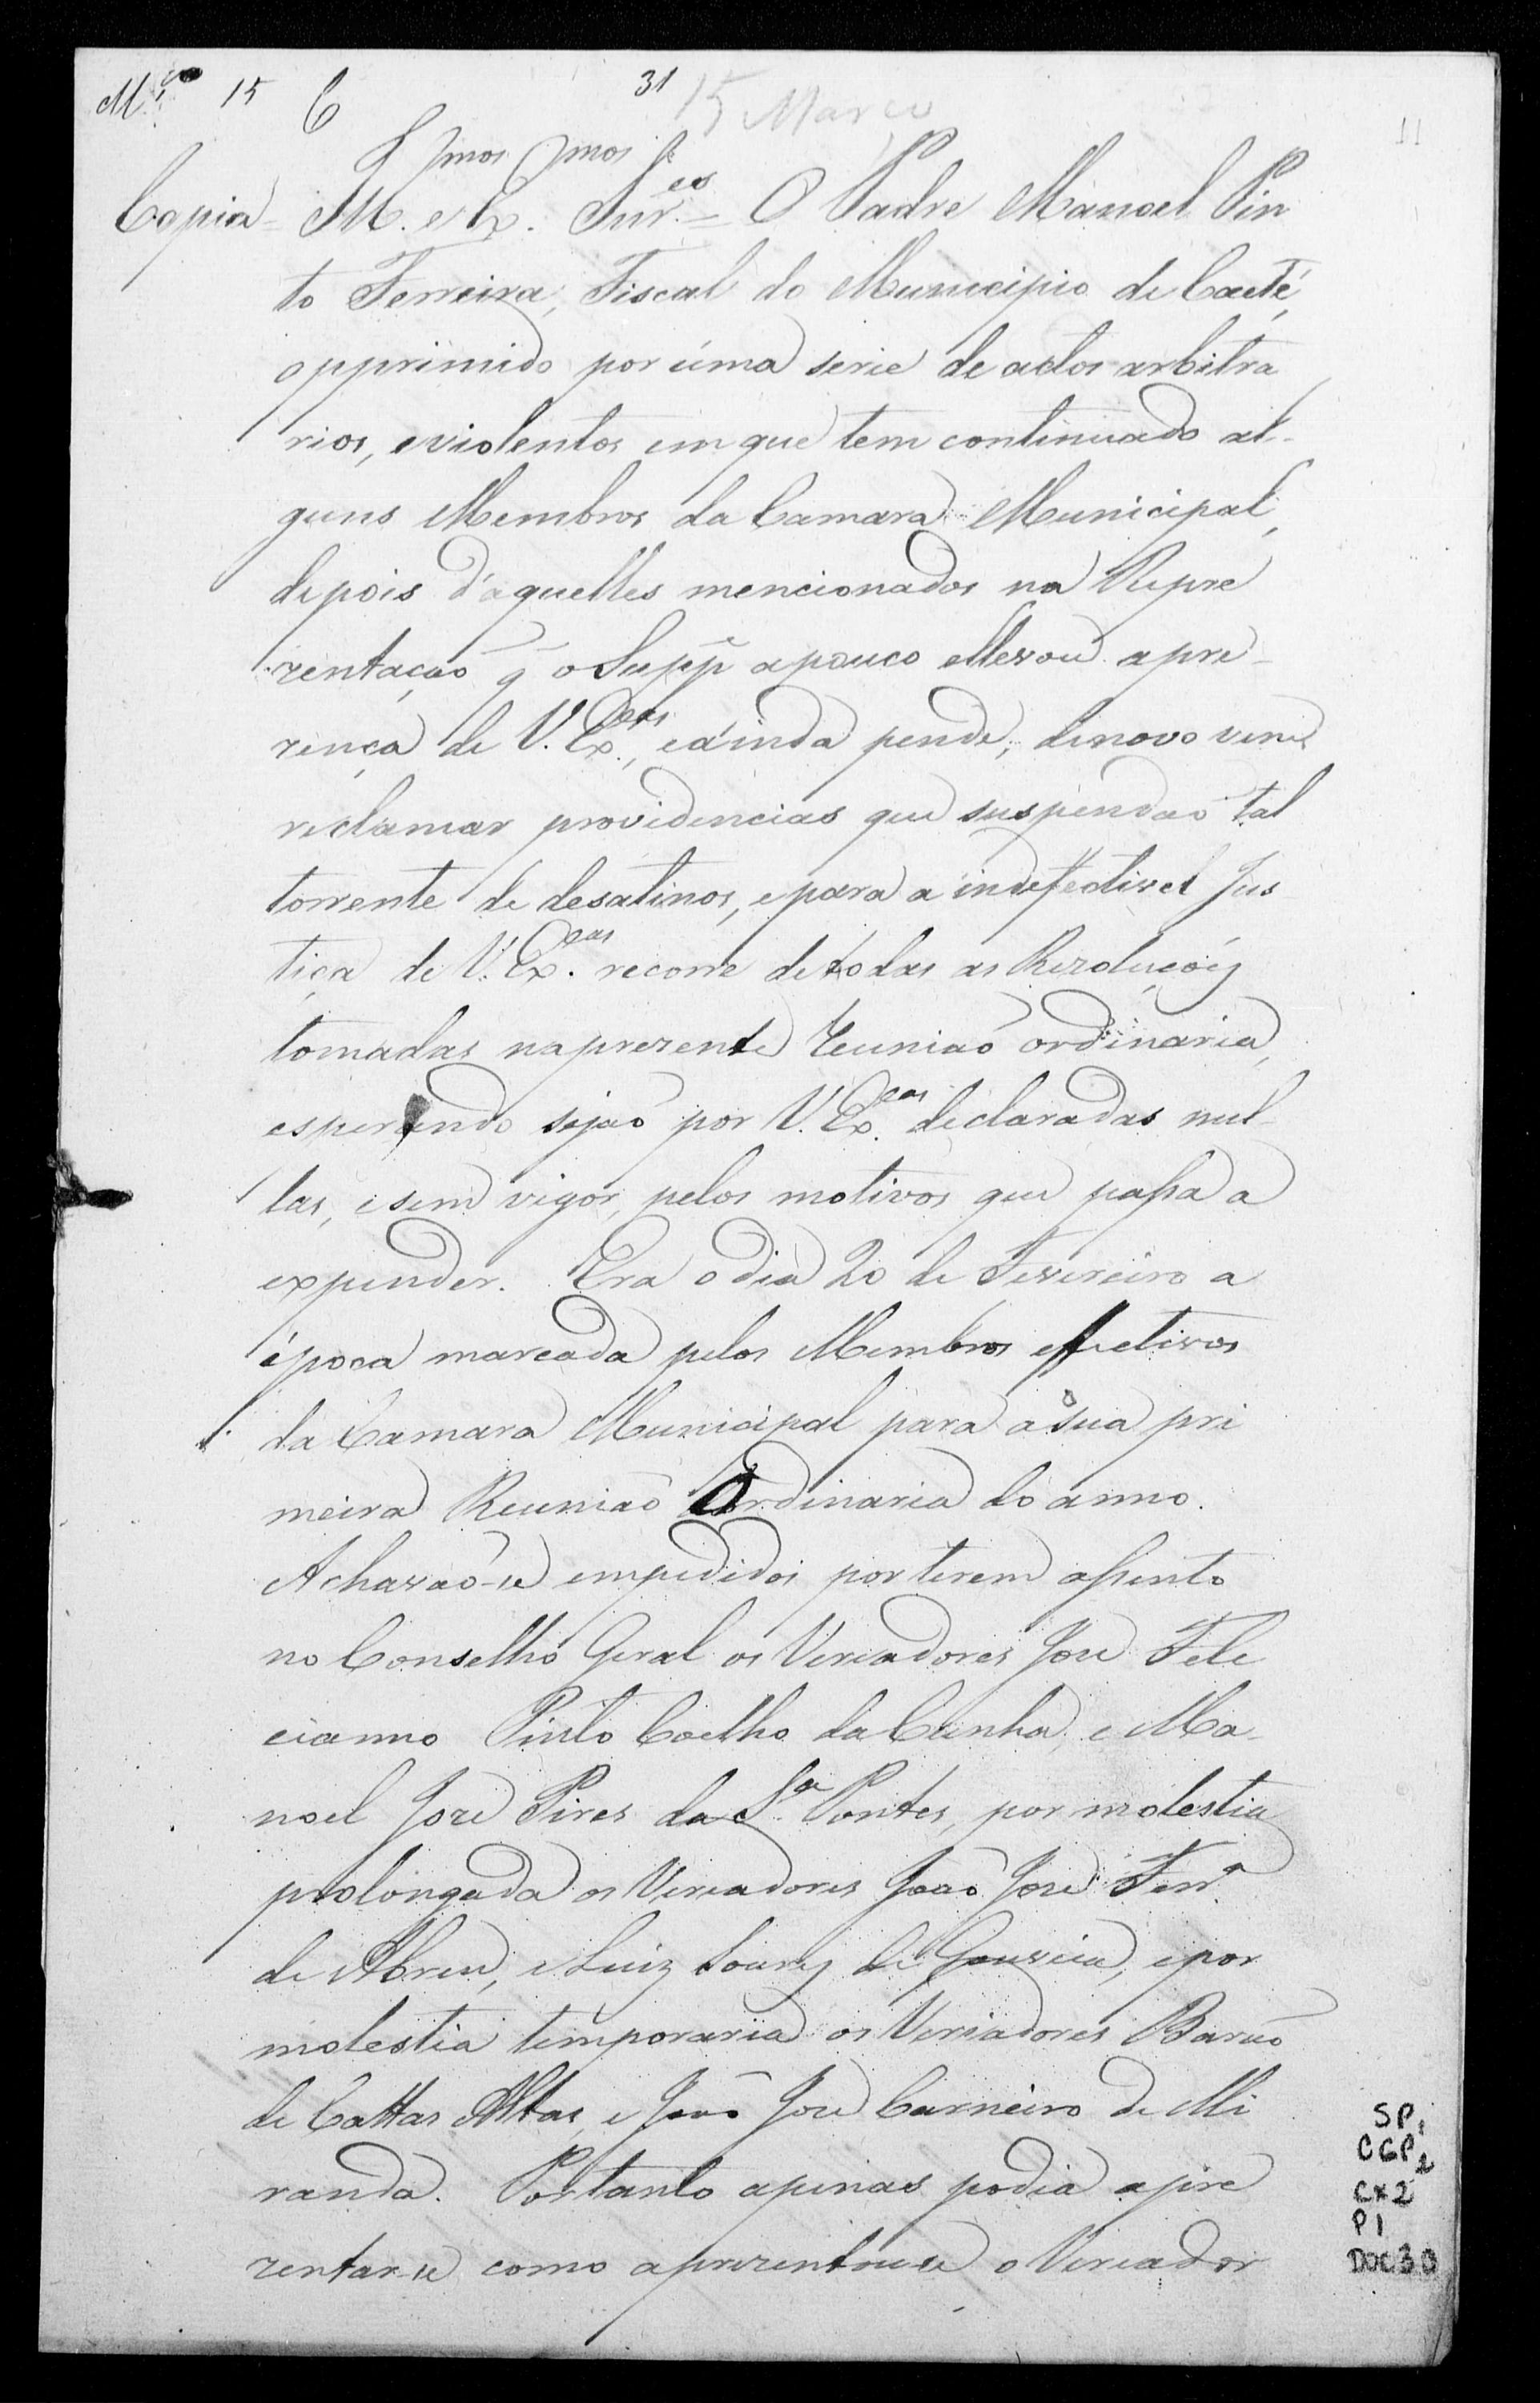 M.ço 15 C 31 15 Março
11
Copia = Il.mos e Ex.mos Snr.es = O Padre Manoel Pin
to Ferreira, Fiscal do Municipio de Caeté,
opprimido por úma serie de actos arbitra
rios, e violentos em que tem continuado al-
guns Membros da Camara Municipal,
depois d'aquelles mencionados na Repre
zentação q̃ o Supp.e apouco elevou a pre-
zença de V. Ex.cas, e ainda pende; denovo vem
reclamar providencias que suspendaõ tal
torrente de desatinos, e para a indefectivel Jus
tiça de V. Ex.cas recorre de todas as Rezoluçoẽs
tomadas naprezente Reuniaõ ordinaria,
esperando sejaõ por V. Ex.cas declaradas nul-
las, e sem vigor, pelos motivos que passa a
expender. Era o dia 20 de Fevereiro a
época marcada pelos Membros effectivos
da Camara Municipal para a sua pri
meira Reuniaõ Ordinaria do anno.
Achavaõ-se empedidos por terem assento
no Conselho Geral os Vereadores Joze Feli
cianno Pinto Coelho da Cunha, e Ma-
noel Joze Pires da S.a Pontes, por molestia
prolongada os Vereadores Joaõ Joze Ferr.a
de Abreu, e Luiz Soares de Gouveia, e por
molestia temporaria os Vereadores Baraõ
de Cattas Altas, e Joaõ Joze Carneiro de Mi
randa. Portanto apenas podia apre
zentar-se como aprezentouse o Vereador
SP1
CGP2
CX2
P1
DOC30